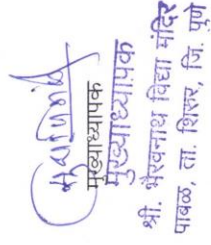 मुख्याध्यापक
मुख्याध्यापक
श्री. भैरवनाथ विद्या मंदिर
पाबळ, ता. शिरूर, जि. पुणे